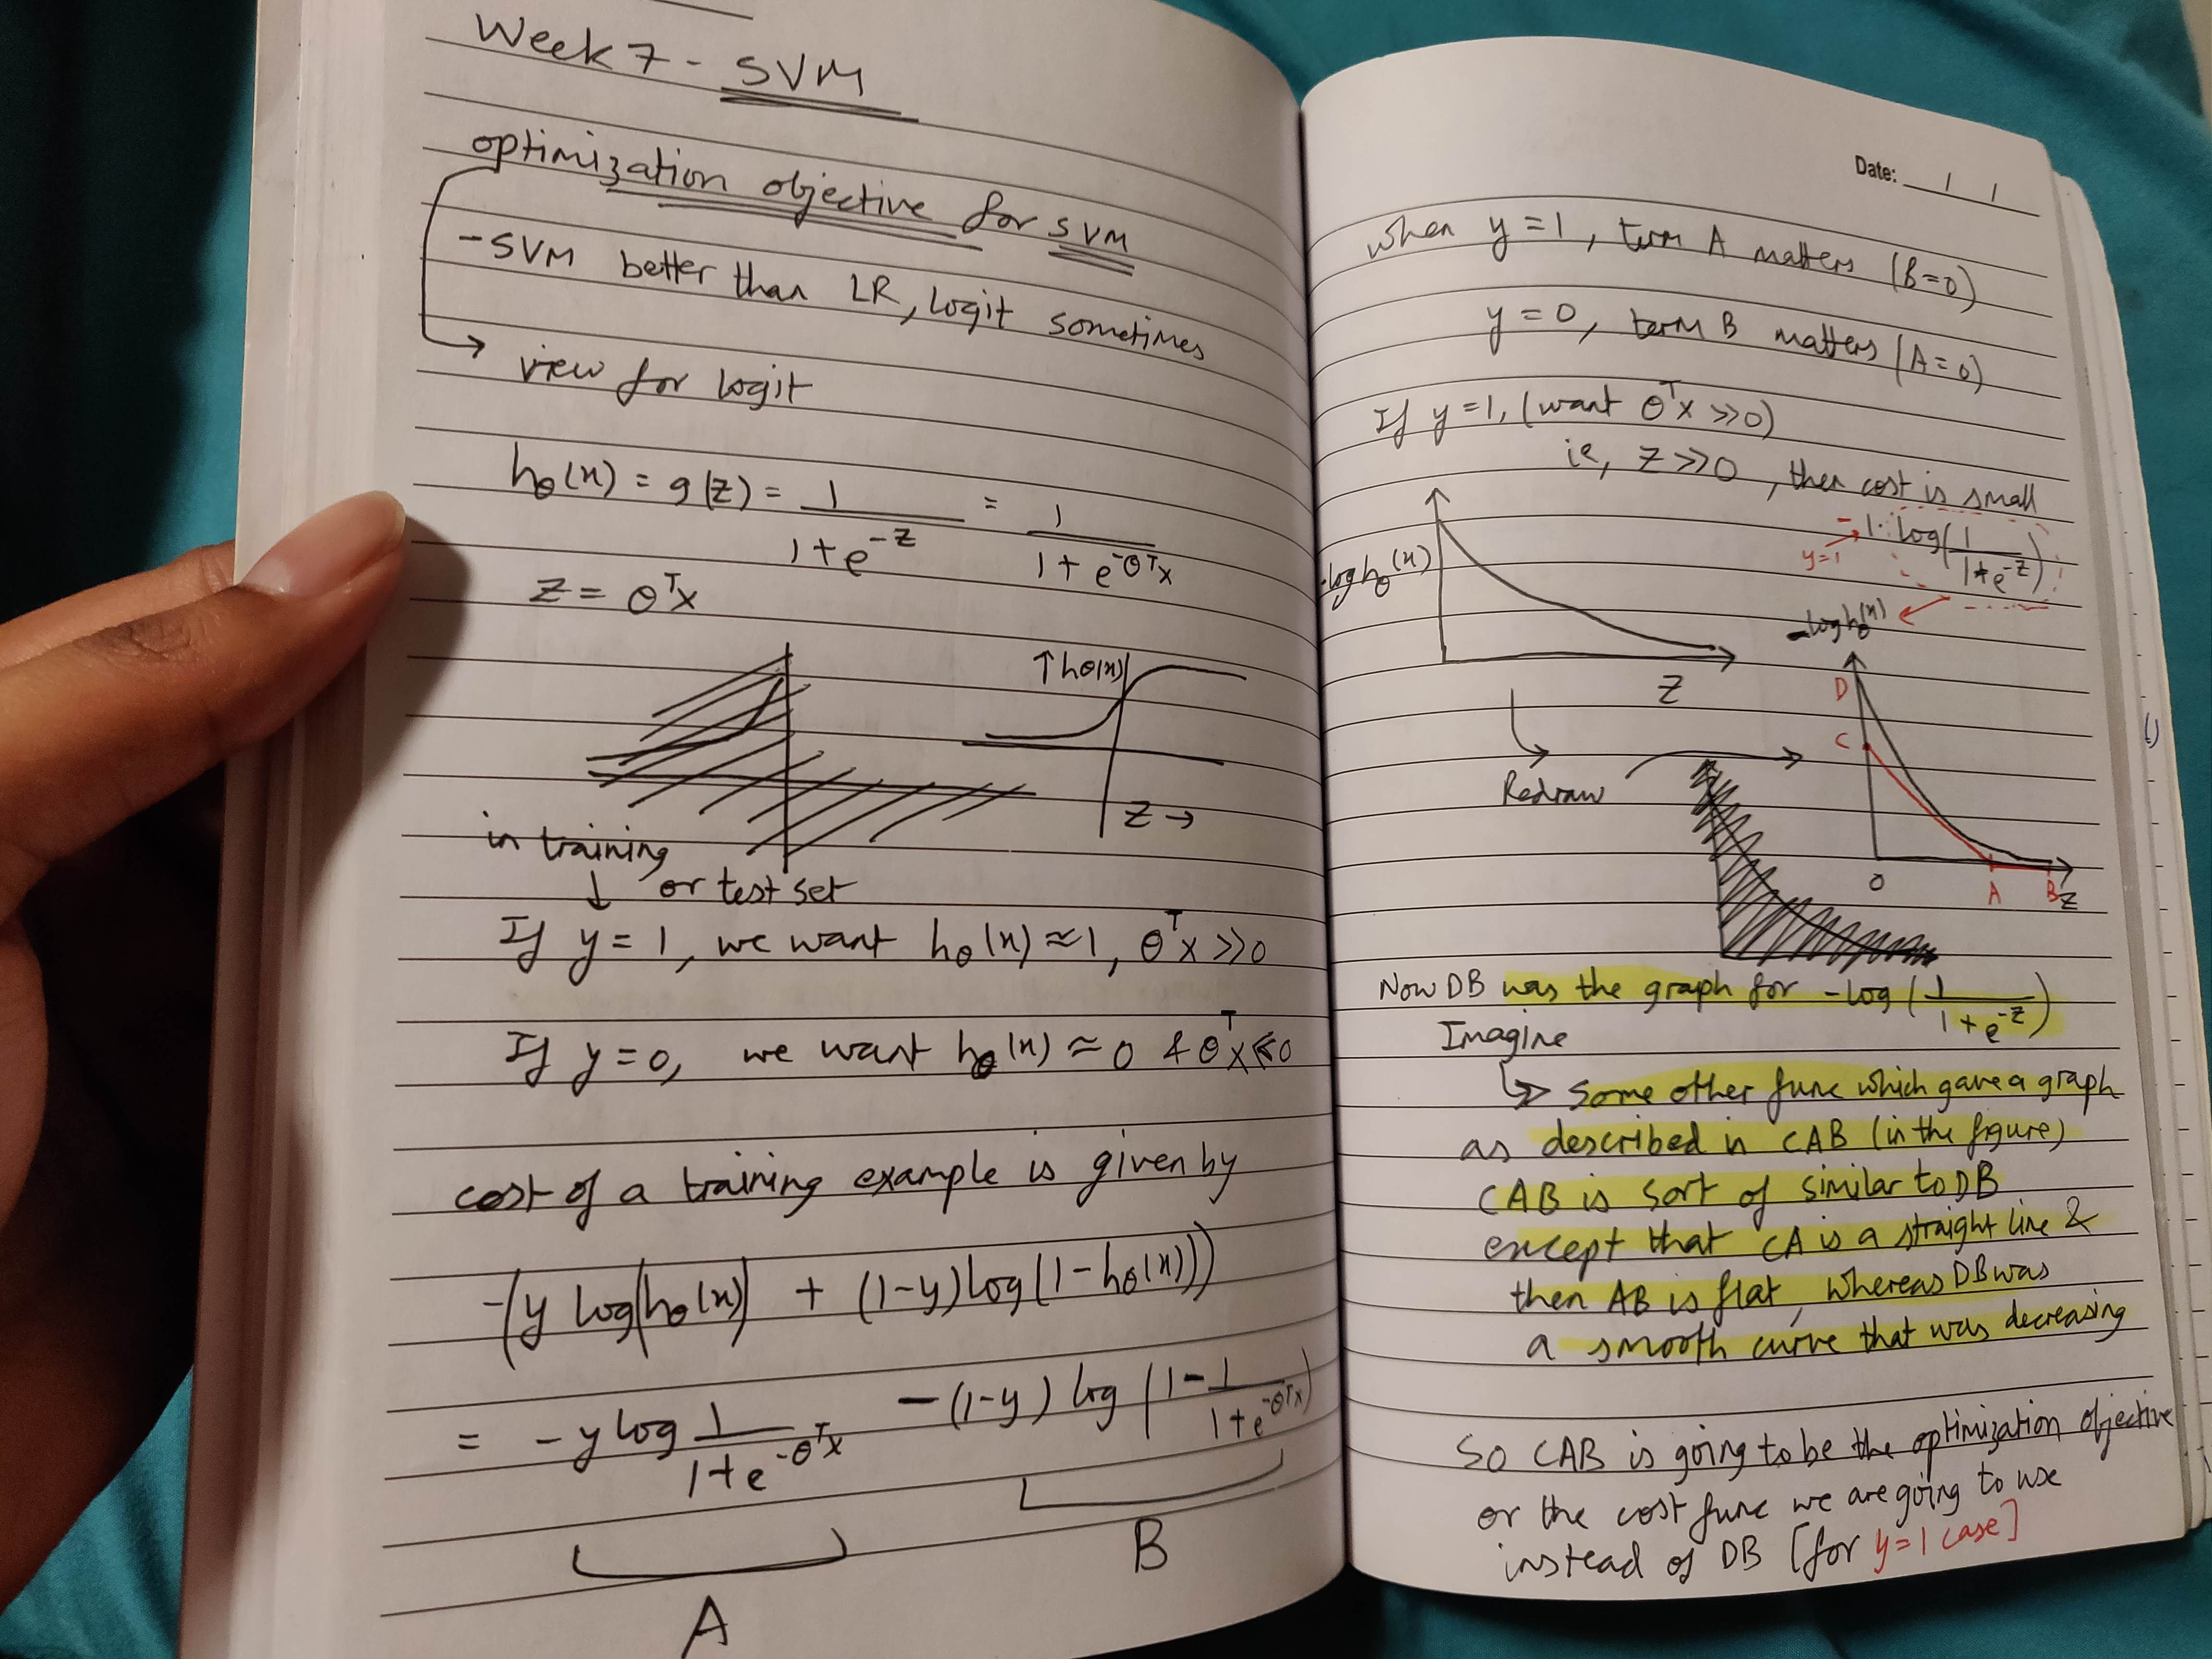 Week 7 - SVM
optimization objective for SVM
- SVM better than LR, logit sometimes
view for logit
hθ(x) = g(z) = 1/(1+e^-z) = 1/(1+e^-θᵀx)
z = θᵀx
↑hθ(x)
z →
in training
↓ or test set
If y = 1, we want hθ(x) ≈ 1, θᵀx >> 0
If y = 0, we want hθ(x) ≈ 0 & θᵀx << 0
cost of a training example is given by
-(y log(hθ(x)) + (1-y) log(1-hθ(x)))
= -y log 1/(1+e^-θᵀx) - (1-y) log(1 - 1/(1+e^-θᵀx))
A
B
Date: / /
When y = 1, term A matters (B=0)
y = 0, term B matters (A=0)
If y = 1, (want θᵀx >> 0)
ie, z >> 0, then cost is small
y=1 → -1. log(1/(1+e^-z))
-log hθ(x)
z
-log hθ(x)
D
C
0
A
B
z
Redraw
Now DB was the graph for -log(1/(1+e^-z))
Imagine
↳ some other func which gave a graph
as described in CAB (in the figure)
CAB is sort of similar to DB
except that CA is a straight line &
then AB is flat, whereas DB was
a smooth curve that was decreasing
So CAB is going to be the optimization objective
or the cost func we are going to use
instead of DB [for y=1 case]